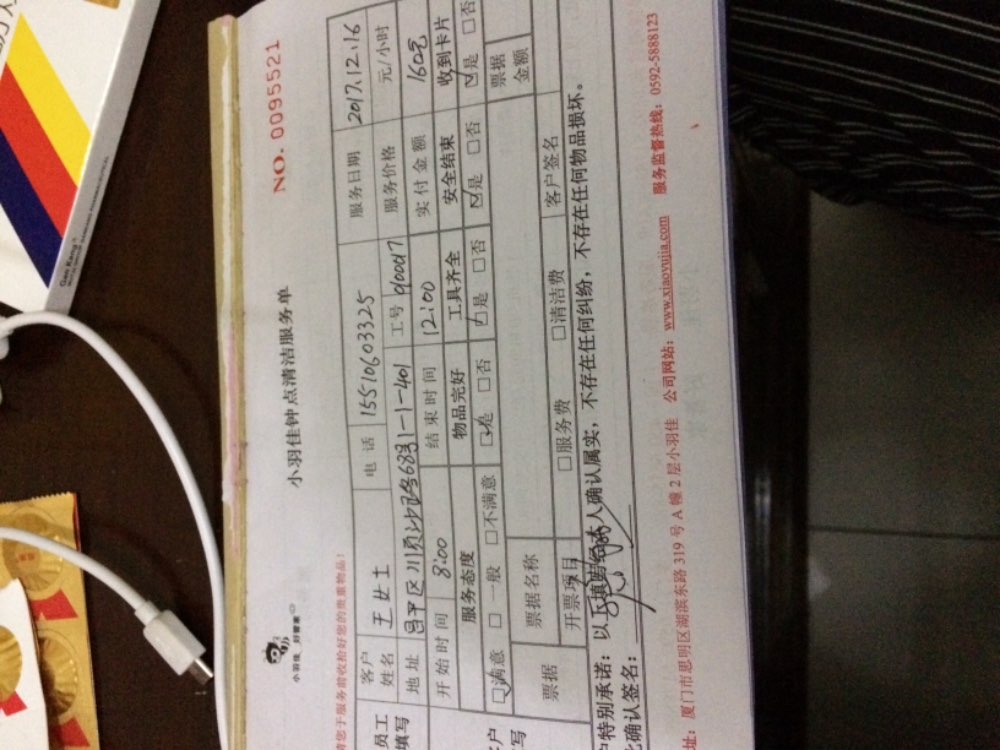 小羽佳 好管家
小羽佳钟点清洁服务单
NO. 0095521
请您于服务前收拾好您的贵重物品!
员工填写
客户姓名 王女士 电话 15510603325 服务日期 2017.12.16
地址 昌平区 683-1-401 工号 服务价格 元/小时
开始时间 8:00 结束时间 12:00 实付金额 160元
服务态度 物品完好 工具齐全 安全结束 收到卡片
☑满意 □一般 □不满意 ☑是 □否 ☑是 □否 ☑是 □否 ☑是 □否
票据 票据名称 票据金额
开票项目 □服务费 □清洁费 客户签名
户特别承诺:以上填写经本人确认属实,不存在任何纠纷,不存在任何物品损坏。
此确认签名:
址:厦门市思明区湖滨东路 319 号 A 幢 2 层小羽佳 公司网站:www.xiaoyujia.com 服务监督热线:0592-5888123
Gan Kang